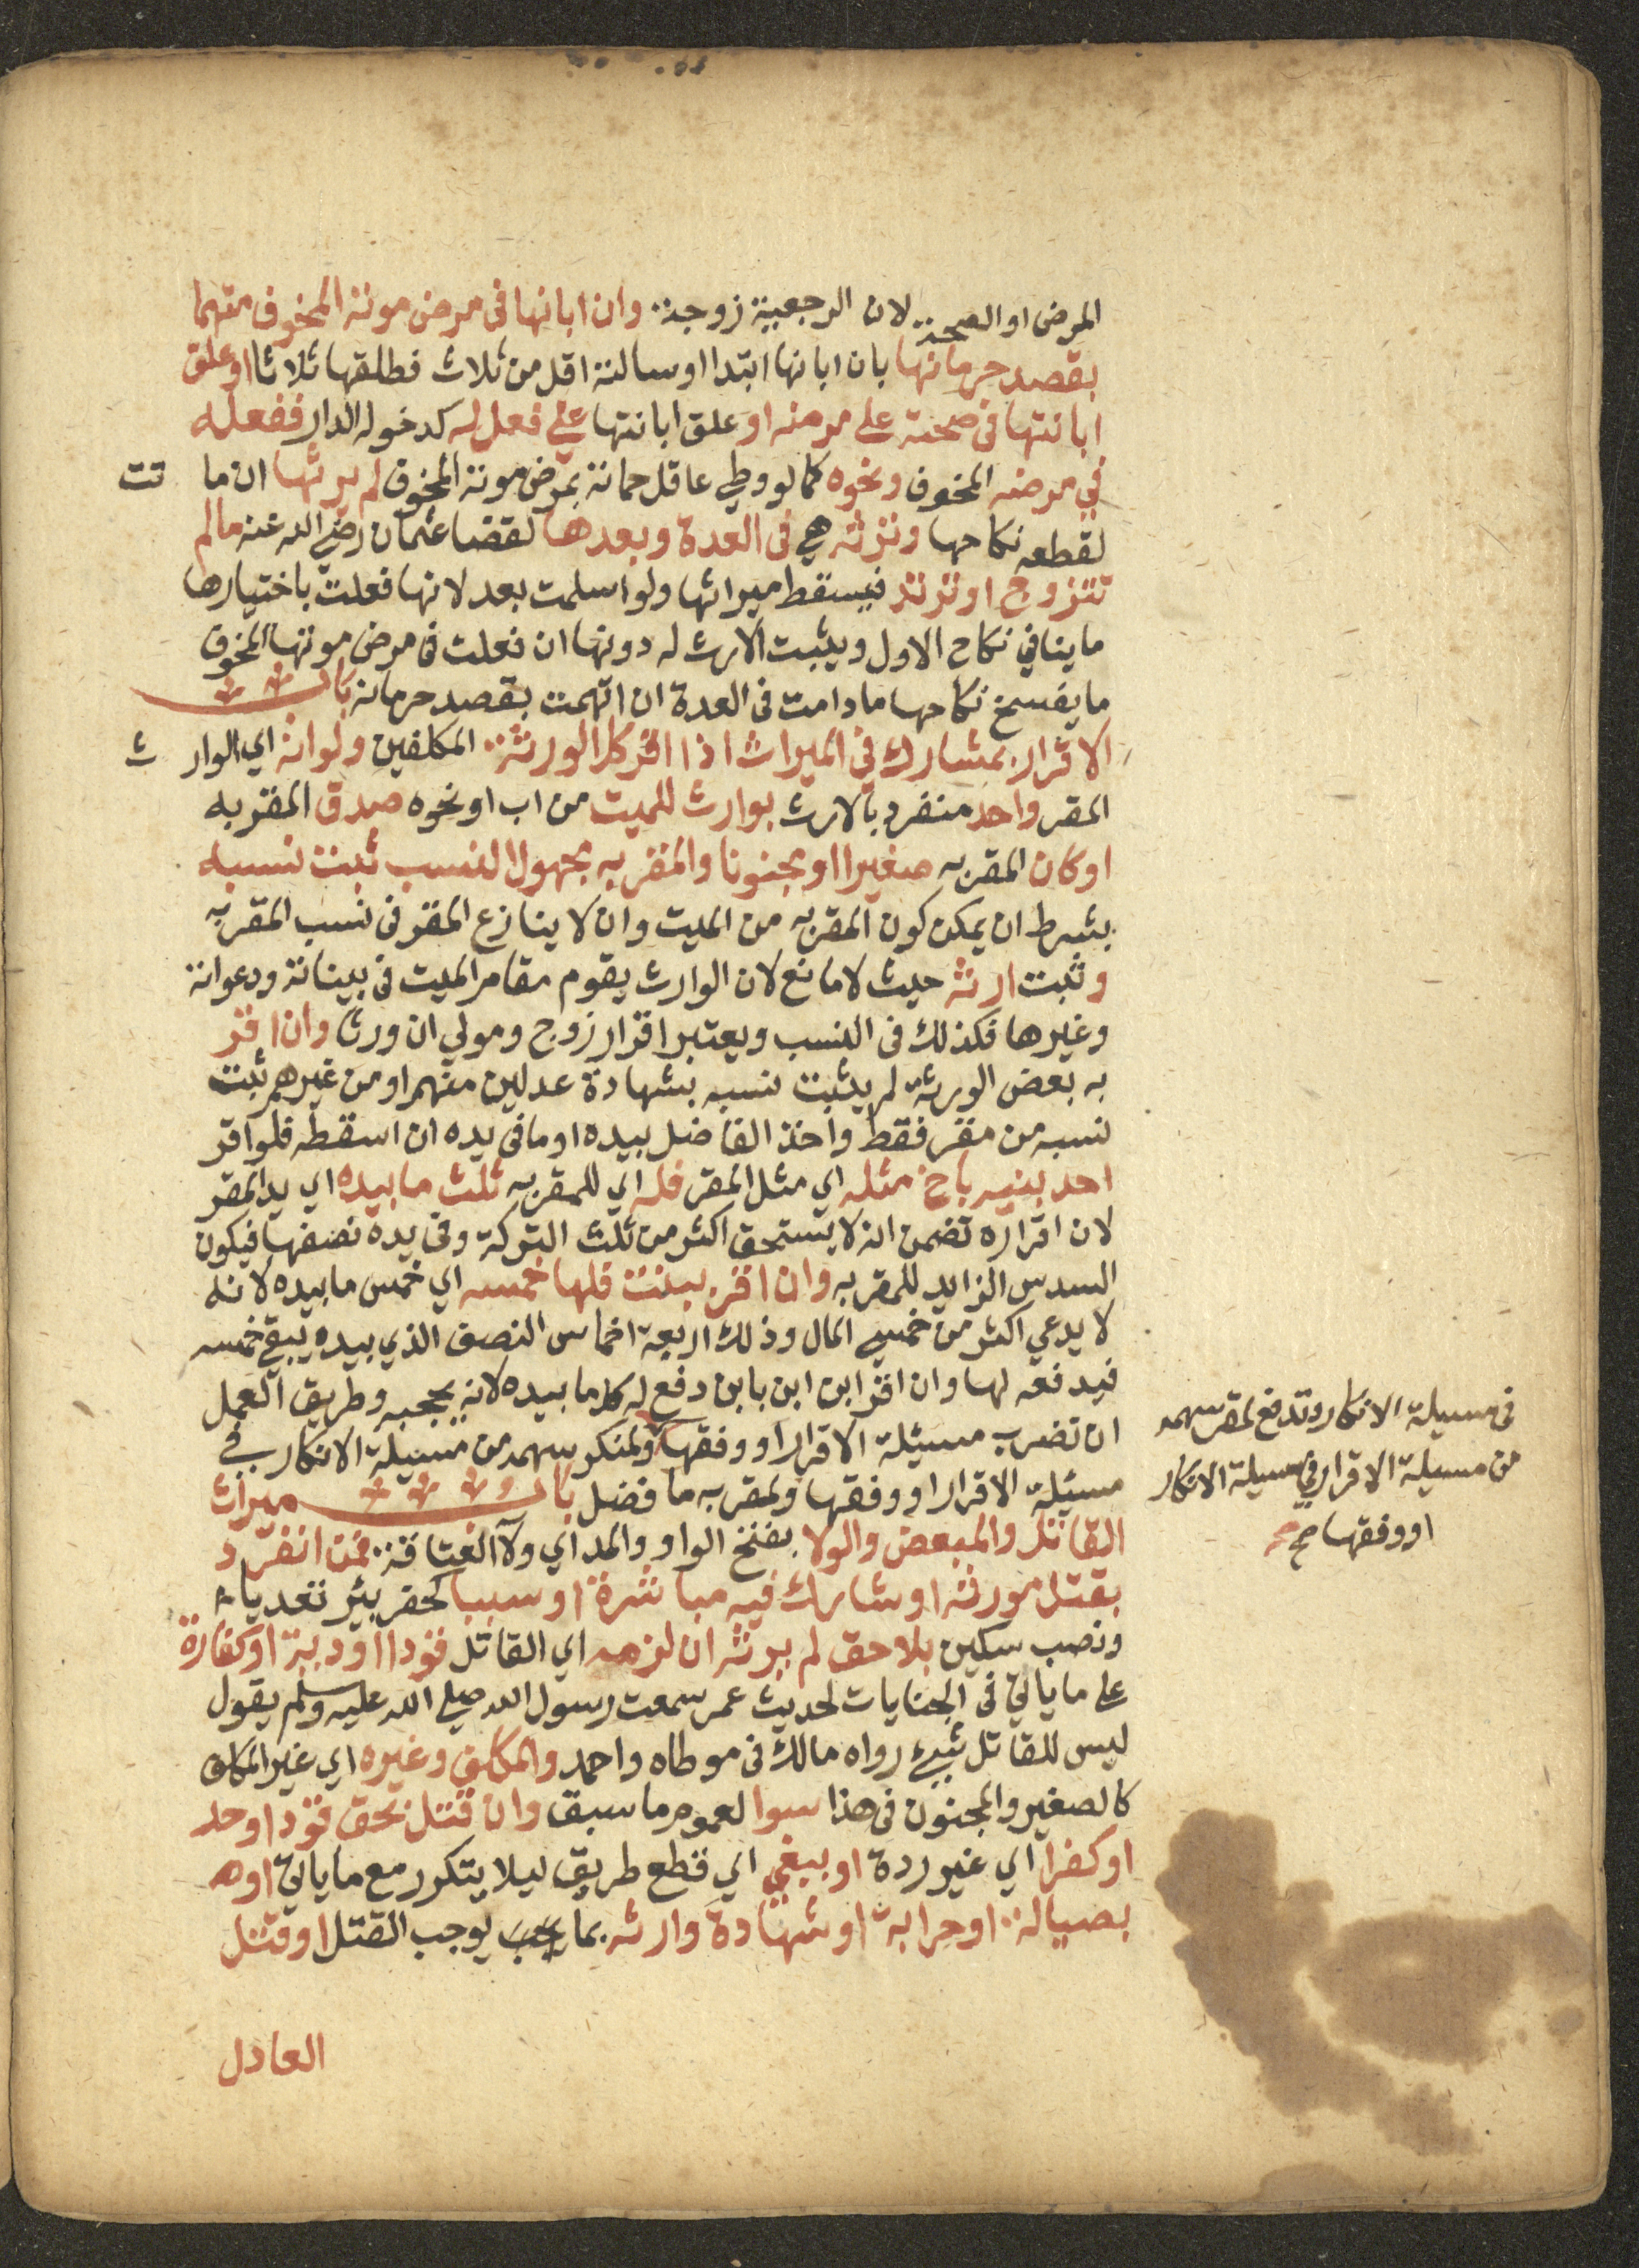 المرض او الصحة لان الرجعية زوجة وان ابانها فى مرض موته المخوف متهما
بقصد حرمانها بان ابانها ابتدا او سالته اقل من ثلاث فطلقها ثلاثا او علق
ابانتها فى صحته على مرضه او علق ابانتها على فعل له كدخوله الدار ففعله
في مرضه المخوف ونحوه كما لو وطي عاقل حماته بمرض موته المخوف لم يرثها ان ما تت
لقطعه نكاحها وترثه هي فى العدة وبعدها لقضا عثمان رضي الله عنه مالم
تتزوج او ترتد فيسقط ميراثها ولو اسلمت بعد لانها فعلت باختيارها
ما ينافي نكاح الاول ويثبت الارث له دونها ان فعلت فى مرض موتها المخوف
ما يفسخ نكاحها مادامت فى العدة ان اتهمت بقصد حرمانه باب
الاقرار بمشارك في الميراث اذا اقر كل الورثة المكلفين ولو انه اي الوار ث
المقر واحد منفرد بالارث بوارث للميت من اب او نحوه صدق المقر به
او كان المقر به صغيرا او مجنونا والمقر به مجهول النسب ثبت نسبه
بشرط ان يمكن كون المقر به من الميت وان لا ينازع المقر فى نسب المقر به
وثبت ارثه حيث لا مانع لان الوارث يقوم مقام الميت فى بيناته ودعواته
وغيرها فكذلك فى النسب ويعتبر اقرار زوج ومولي ان ورثا وان اقر
به بعض الورثة لم يثبت نسبه بشهادة عدلين منهم او من غيرهم ثبت
نسبه من مقر فقط واخذ الفاضل بيده او ما فى يده ان اسقطه فلو اقر
احد بنيه باخ مثله اي مثل المقر فله اي للمقر به ثلث ما بيده اي يد المقر
لان اقراره تضمن انه لا يستحق اكثر من ثلث التركة وفى يده نصفها فيكون
السدس الزايد للمقر به وان اقر ببنت فلها خمسه اي خمس ما بيده لانه
لا يدعي اكثر من خمسي المال وذلك اربعة اخماس النصف الذي بيده يبقي خمسه
فيدفعه لها وان اقر ابن ابن بابن دفع له كل ما بيده لانه يحجبه وطريق العمل
ان تضرب مسئلة الاقرار او وفقها ولمنكر سهمه من مسيلة الانكار في
مسئلة الاقرار او وفقها ولمقر به ما فضل باب ميراث
القاتل والمبعض والولا بفتح الواو والمد اي ولا العتاقة فمن انفرد
بقتل مورثه او شارك فيه مباشرة او سببا كحفر بئر تعديا
ونصب سكين بلا حق لم يرثه ان لزمه اي القاتل قودا او دية او كفارة
على ما ياتي فى الجنايات لحديث عمر سمعت رسول الله صلى الله عليه وسلم يقول
ليس للقاتل شيء رواه مالك فى موطاه واحمد والمكلف وغيره اي غير المكلف
كالصغير والمجنون فى هذا سوا لعموم ما سبق وان قتل بحق قودا او حد
او كفرا اي غير ردة او ببغي اي قطع طريق ليلا يتكرر مع ما ياتي او
بصيالة او حرابة او شهادة وارثه بما يوجب القتل او قتل
العادل
فى مسيلة الانكار وتدفع لمقر سهمه
من مسيلة الاقرار في مسيلة الانكار
او وفقها صح